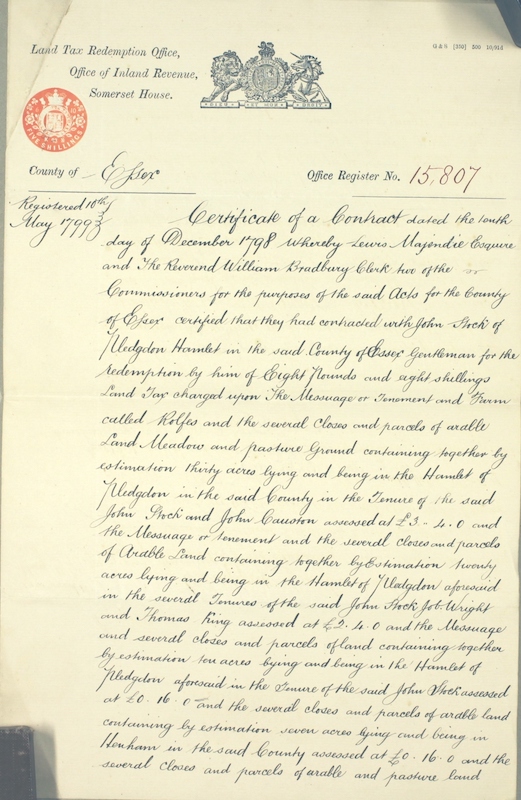 Land Tax Redemption Office,
Office of Inland Revenue,
Somerset House.
G & S [350] 500 10,014
DIEU ET MON DROIT
FIVE SHILLINGS
County of Essex
Office Register No. 15,807
Registered 10th
May 1799
Certificate of a Contract dated the tenth
day of December 1798 Whereby Lewis Majendie Esquire
and The Reverend William Bradbury Clerk two of the
Commissioners for the purposes of the said Acts for the County
of Essex certified that they had contracted with John Stock of
Pledgdon Hamlet in the said County of Essex Gentleman for the
redemption by him of Eight Pounds and eight shillings
Land Tax charged upon The Messuage or Tenement and Farm
called Rolfes and the several Closes and parcels of arable
Land Meadow and pasture Ground containing together by
estimation thirty acres lying and being in the Hamlet of
Pledgdon in the said County in the Tenure of the said
John Stock and John Causton assessed at £3 - 4 . 0 and
the Messuage or tenement and the several closes and parcels
of Arable Land containing together by Estimation twenty
acres lying and being in the Hamlet of Pledgdon aforesaid
in the several Tenures of the said John Stock Job Wright
and Thomas King assessed at £2 . 4 . 0 and the Messuage
and several closes and parcels of land containing together
by estimation ten acres lying and being in the Hamlet of
Pledgdon aforesaid in the Tenure of the said John Stock assessed
at £0 . 16 . 0 and the several closes and parcels of arable land
containing by estimation seven acres lying and being in
Henham in the said County assessed at £0 . 16 . 0 and the
several closes and parcels of arable and pasture land